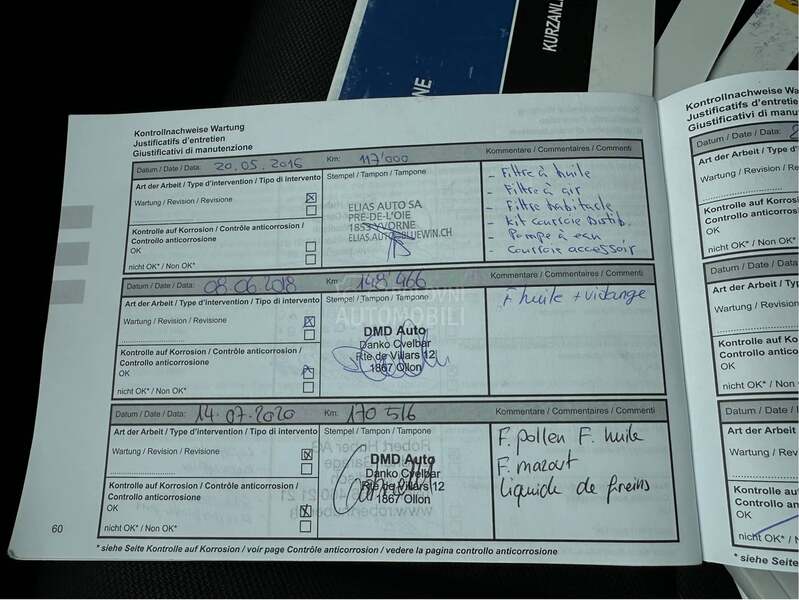 KURZANL
NE
Kontrollnachweise Wartung
Justificatifs d'entretien
Giustificativi di manutenzione
Datum / Date / Data: 20.05.2016 Km: 117'000 Kommentare / Commentaires / Commenti
Art der Arbeit / Type d'intervention / Tipo di intervento Stempel / Tampon / Tampone
Wartung / Revision / Revisione
ELIAS AUTO SA
PRE-DE-L'OIE
1853 YVORNE
ELIAS.AUTO@BLUEWIN.CH
- Filtre à huile
- Filtre à air
- Filtre habitacle
- Kit courroie Distib.
- Pompe à eau
- Courroie accessoir
Kontrolle auf Korrosion / Contrôle anticorrosion /
Controllo anticorrosione
OK
nicht OK* / Non OK*
Datum / Date / Data: 08.06.2018 Km: 148'466 Kommentare / Commentaires / Commenti
Art der Arbeit / Type d'intervention / Tipo di intervento Stempel / Tampon / Tampone
Wartung / Revision / Revisione
AUTOMOBILI
DMD Auto
Danko Cvelbar
Rte de Villars 12
1867 Ollon
F huile + vidange
Kontrolle auf Korrosion / Contrôle anticorrosion /
Controllo anticorrosione
OK
nicht OK* / Non OK*
Datum / Date / Data: 14.07.2020 Km: 170 516 Kommentare / Commentaires / Commenti
Art der Arbeit / Type d'intervention / Tipo di intervento Stempel / Tampon / Tampone
Wartung / Revision / Revisione
DMD Auto
Danko Cvelbar
Rte de Villars 12
1867 Ollon
F. pollen F. huile
F. mazout
liquide de freins
Kontrolle auf Korrosion / Contrôle anticorrosion /
Controllo anticorrosione
OK
nicht OK* / Non OK*
60
* siehe Seite Kontrolle auf Korrosion / voir page Contrôle anticorrosion / vedere la pagina controllo anticorrosione
Kontrollnachweise Wa
Justificatifs d'entretien
Giustificativi di manu
Datum / Date / Data: 2
Art der Arbeit / Type
Wartung / Revision /
Kontrolle auf Korros
Controllo anticorros
OK
nicht OK* / Non OK*
Datum / Date / Data:
Art der Arbeit / Typ
Wartung / Revision
Kontrolle auf Kor
Controllo anticorr
OK
nicht OK* / Non O
Datum / Date / Da
Art der Arbeit /
Wartung / Revis
Kontrolle auf
Controllo anti
OK
nicht OK* / No
* siehe Seite